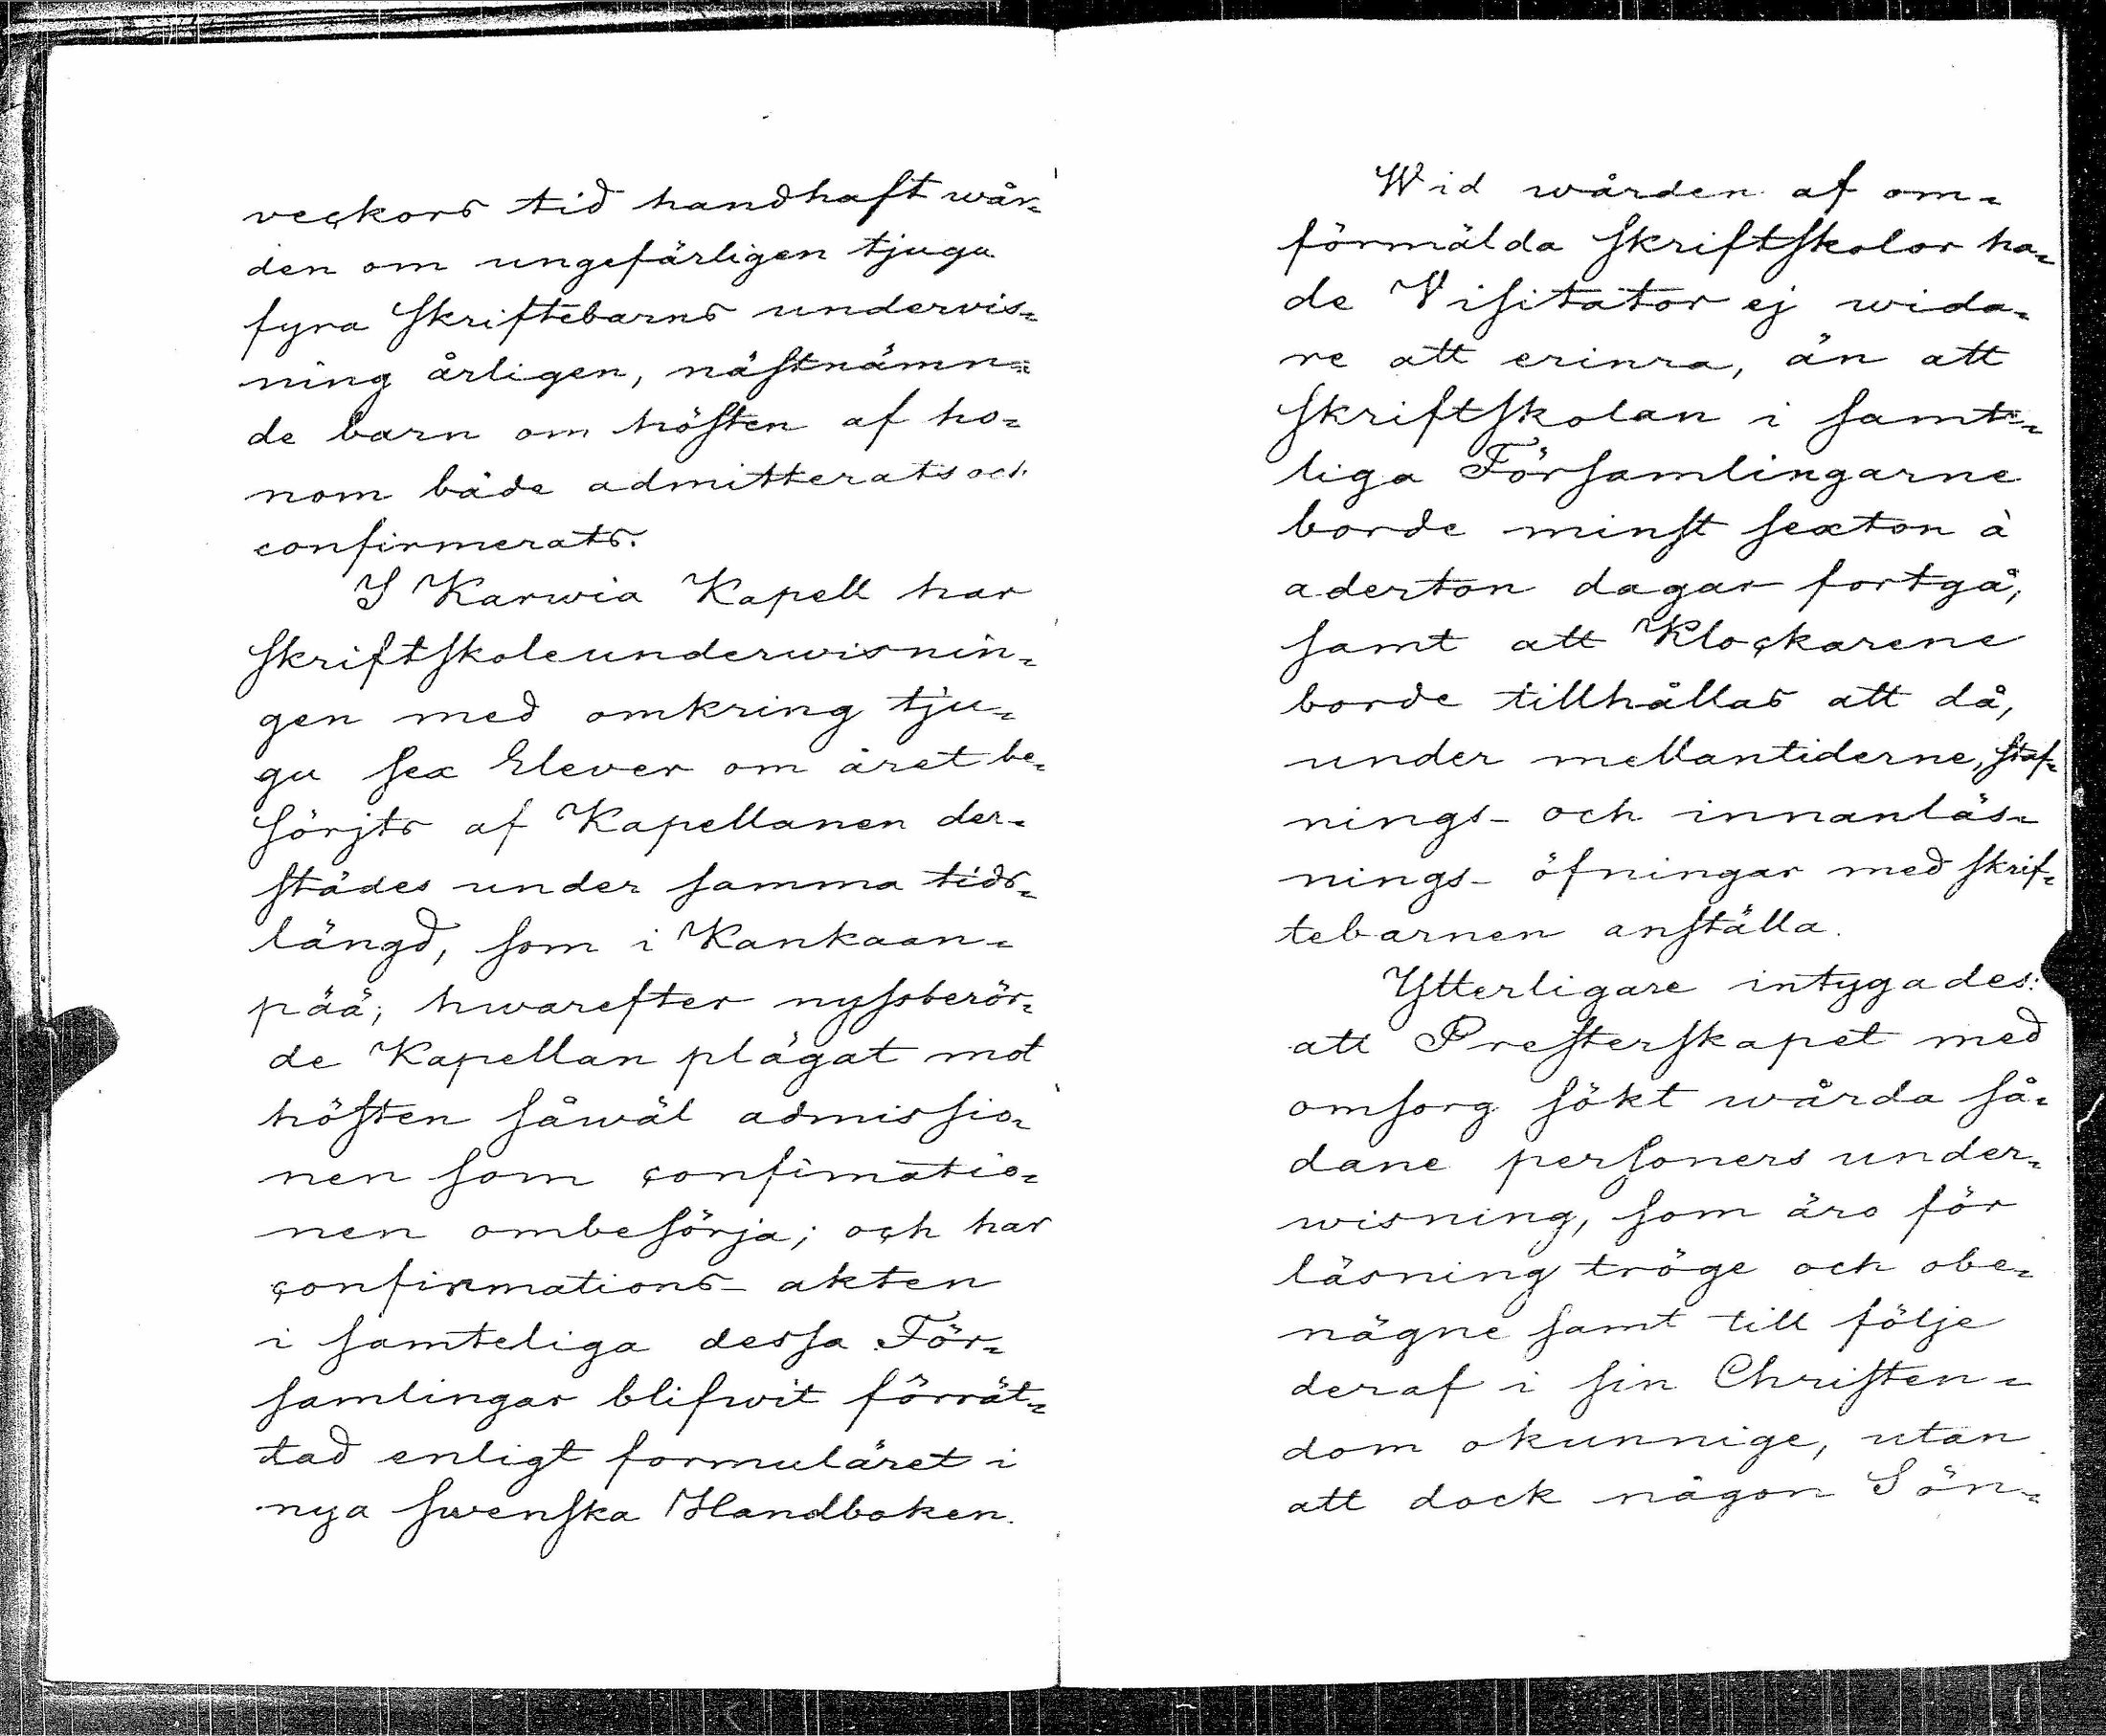 veckors tid handhaft wår=
den om ungefärligen tjugu
fyra skriftebarns undervis=
ning årligen, nästnämn=
de barn om hösten af ho=
nom både admitterats och
confirmerats.
I Karwia Kapell har
skriftskoleunderwisnin=
gen med omkring tju=
gu sex Elever om året be=
sörjts af Kapellanen der=
städes under samma tids=
längd, som i Kankaan=
pää; hwarefter nyssberör=
de Kapellan plägat mot
hösten såwäl admissio=
nen som confimatio=
nen ombesörja; och har
confirmations- akten
i samteliga dessa För=
samlingar blifwit förrät=
tad enligt formuläret i
nya swenska Handboken.
Wid wården af om=
förmälda skriftskolor ha=
de Visitator ej wida=
re att erinra, än att
skriftskolan i samt=
liga Församlingarne
borde minst sexton à
aderton dagar fortgå,
samt att Klockarene
borde tillhållas att då,
under mellantiderne, staf=
nings- och innanläs=
nings- öfningar med skrif=
tebarnen anställa.
Ytterligare intygades:
att Presterskapet med
omsorg sökt wårda så=
dane personers under=
wisning, som äro för
läsning tröge och obe=
nägne samt till följe
deraf i sin Christen=
dom okunnige, utan
att dock någon Sön=